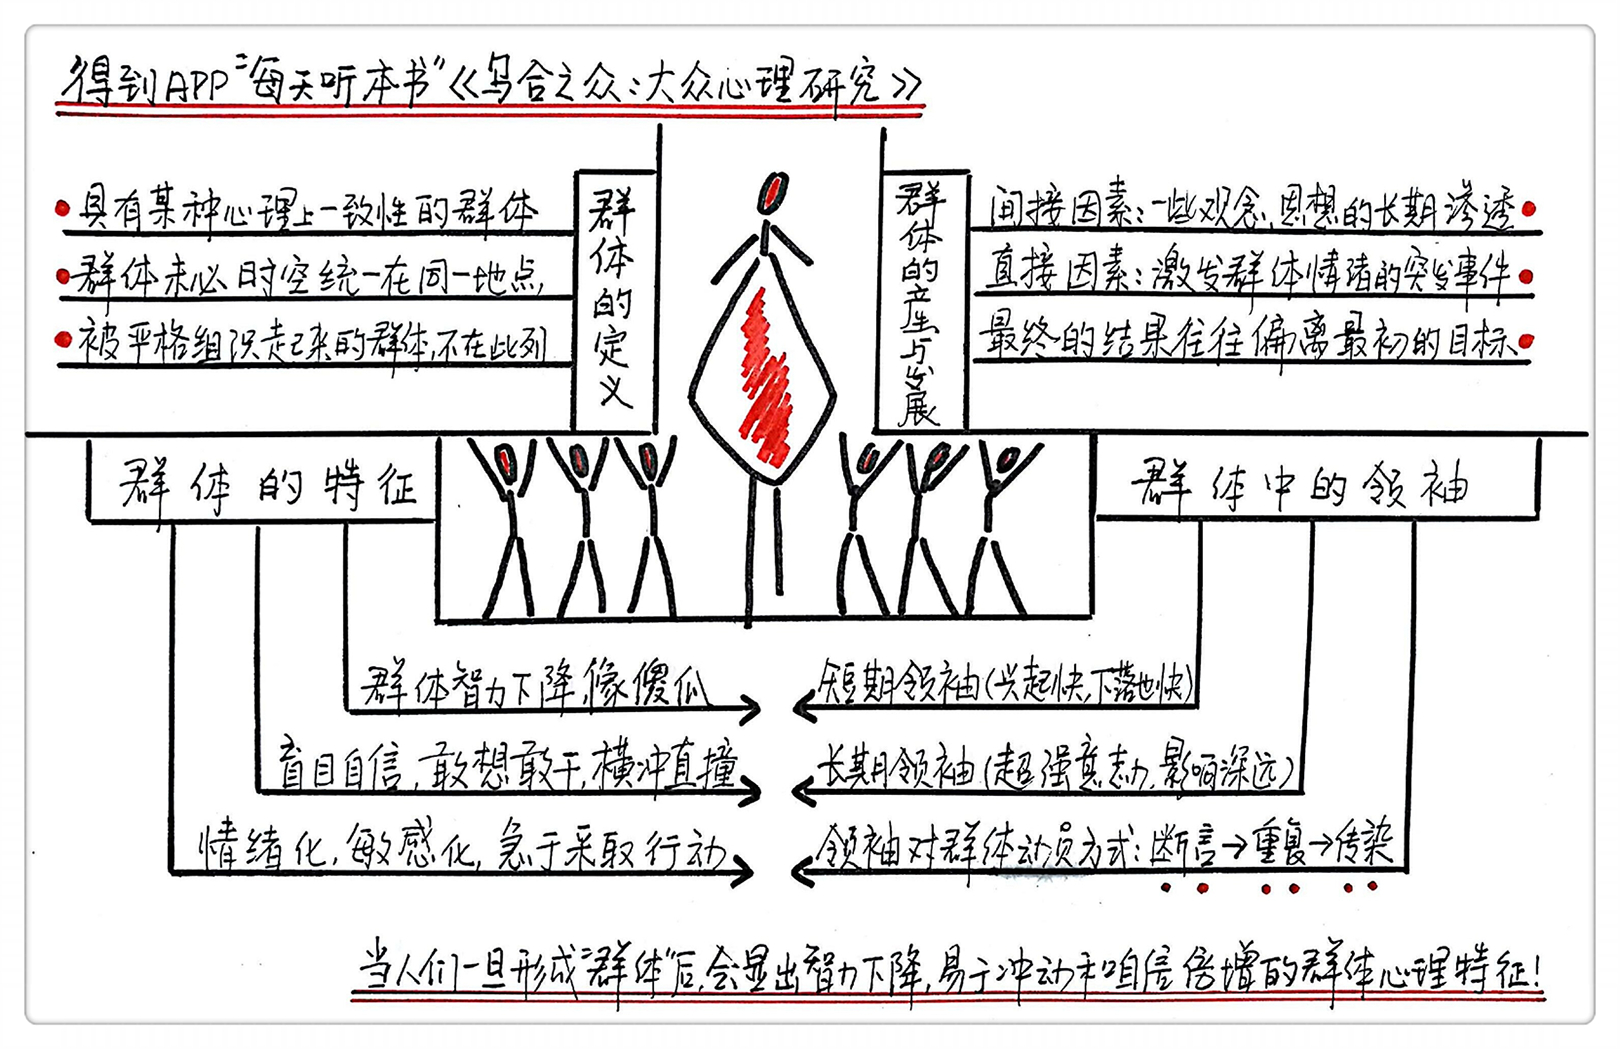 得到APP"每天听本书"《乌合之众:大众心理研究》
群体的定义
具有某种心理上一致性的群体
群体未必时空统一在同一地点,
被严格组织起来的群体,不在此列
群体的产生与发展
间接因素:一些观念、思想的长期渗透
直接因素:激发群体情绪的突发事件
最终的结果往往偏离最初的目标
群体的特征
群体智力下降,像傻瓜
盲目自信,敢想敢干,横冲直撞
情绪化,敏感化,急于采取行动
群体中的领袖
短期领袖(兴起快,下落也快)
长期领袖(超强意志力,影响深远)
领袖对群体动员方式:断言→重复→传染
当人们一旦形成"群体"后,会显出智力下降,易于冲动和自信倍增的群体心理特征!